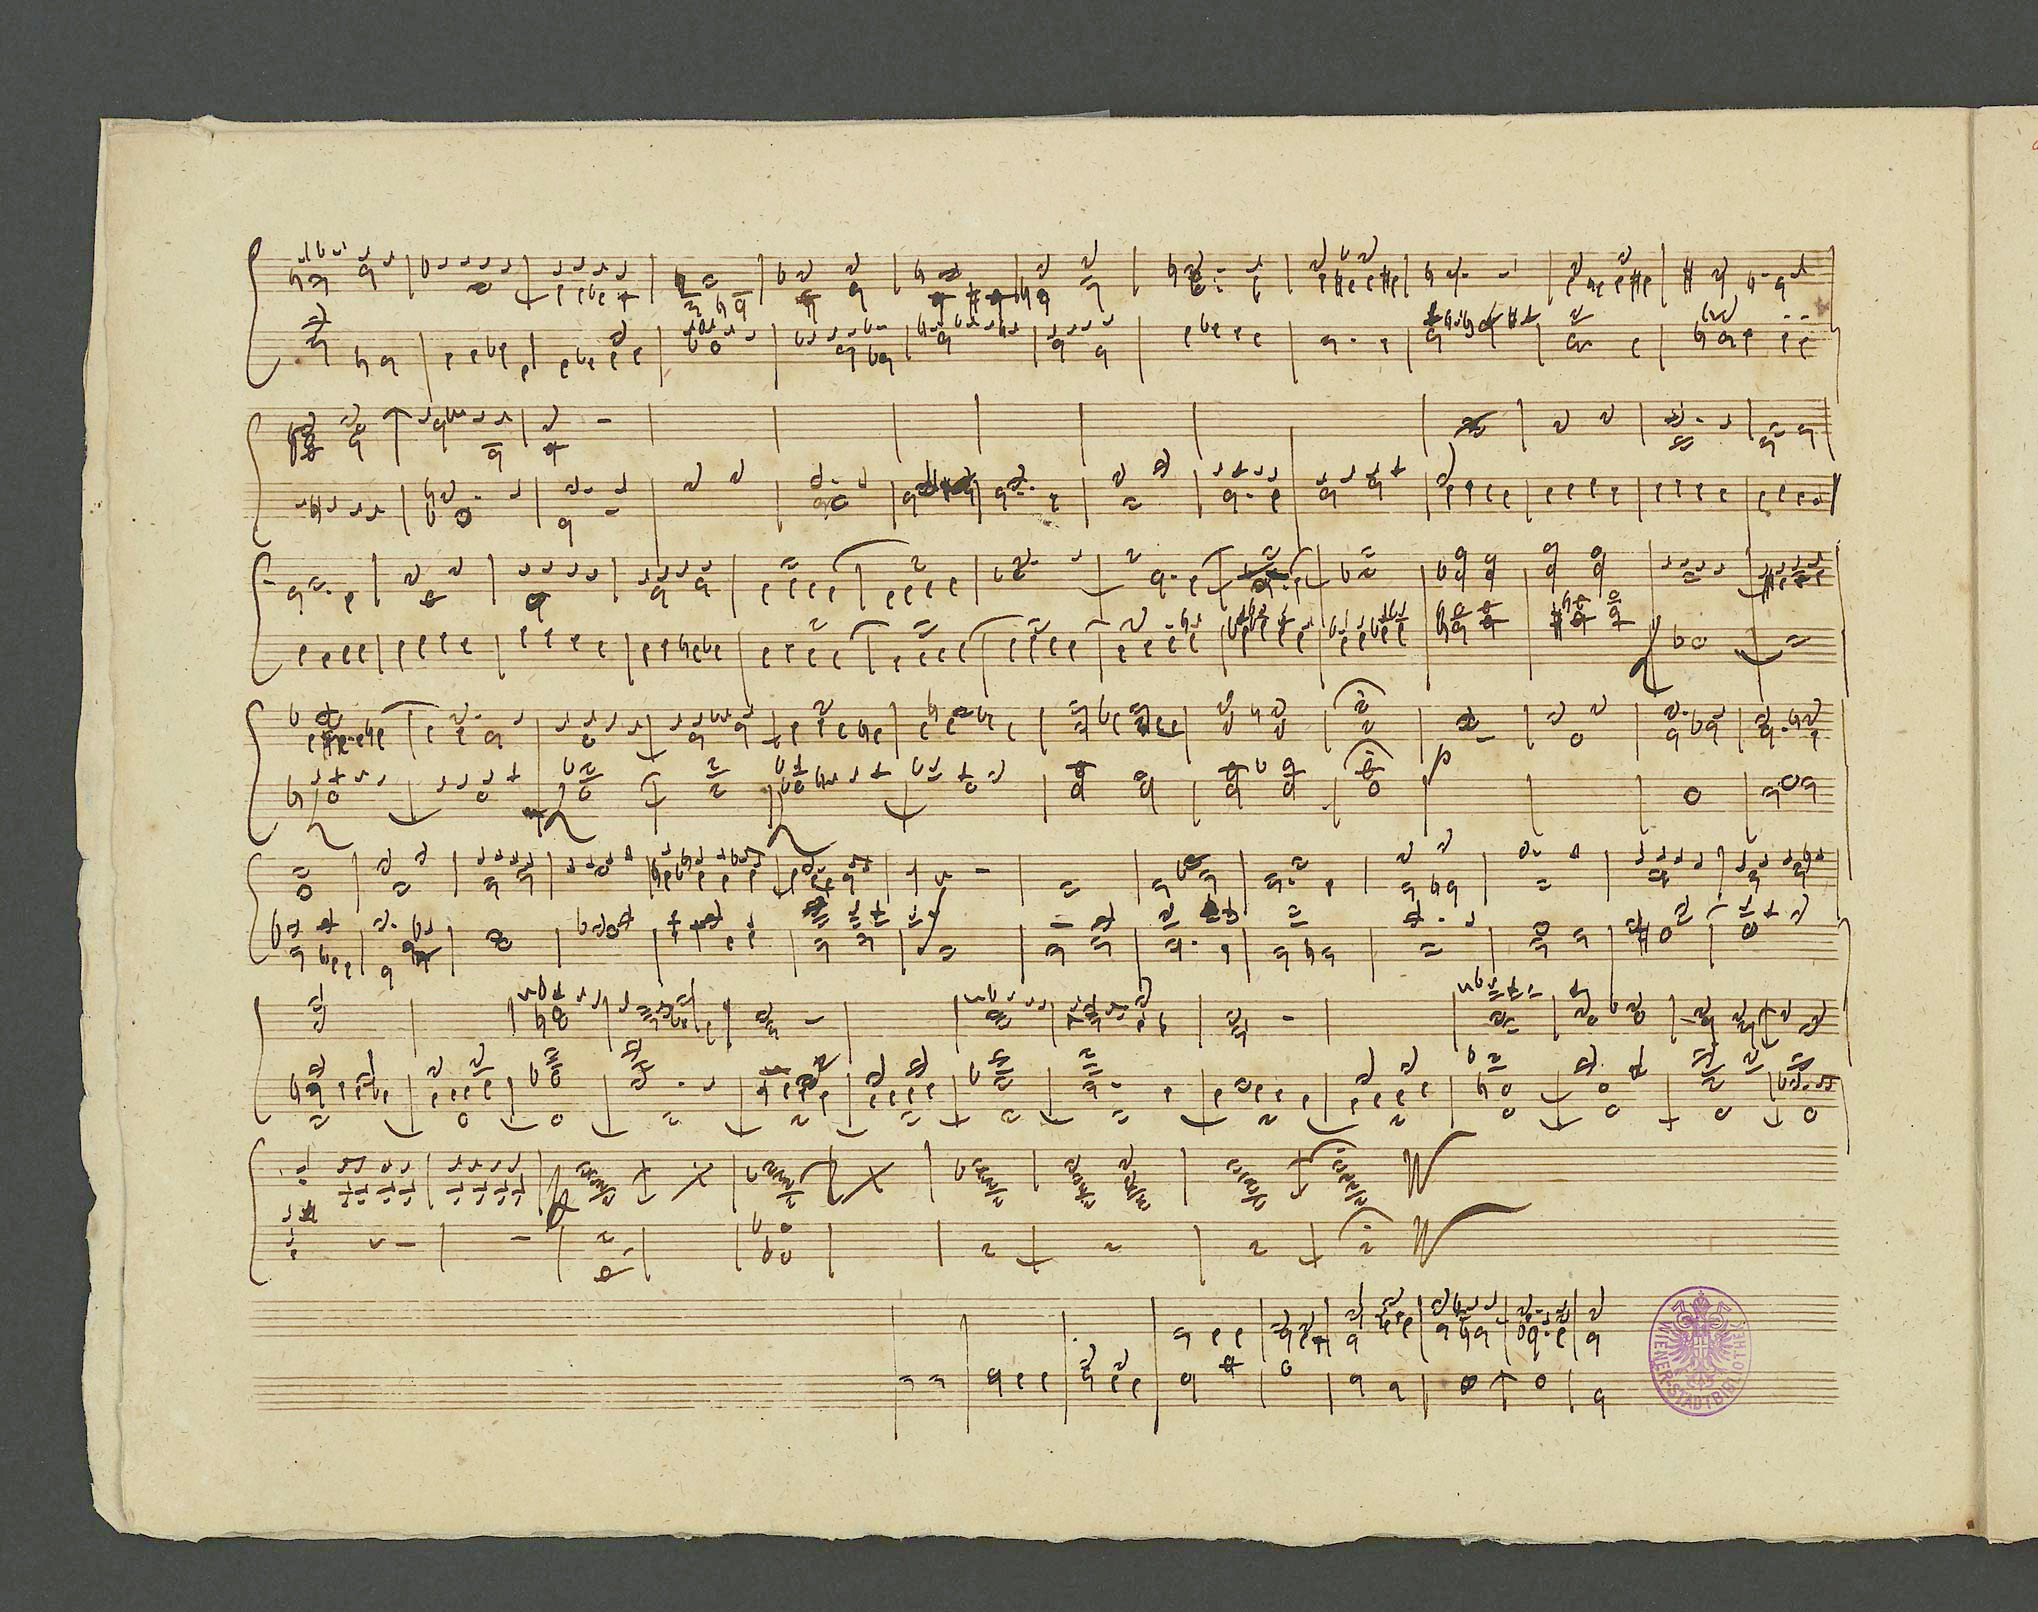 p
WIENER-STADTBIBLIOTHEK